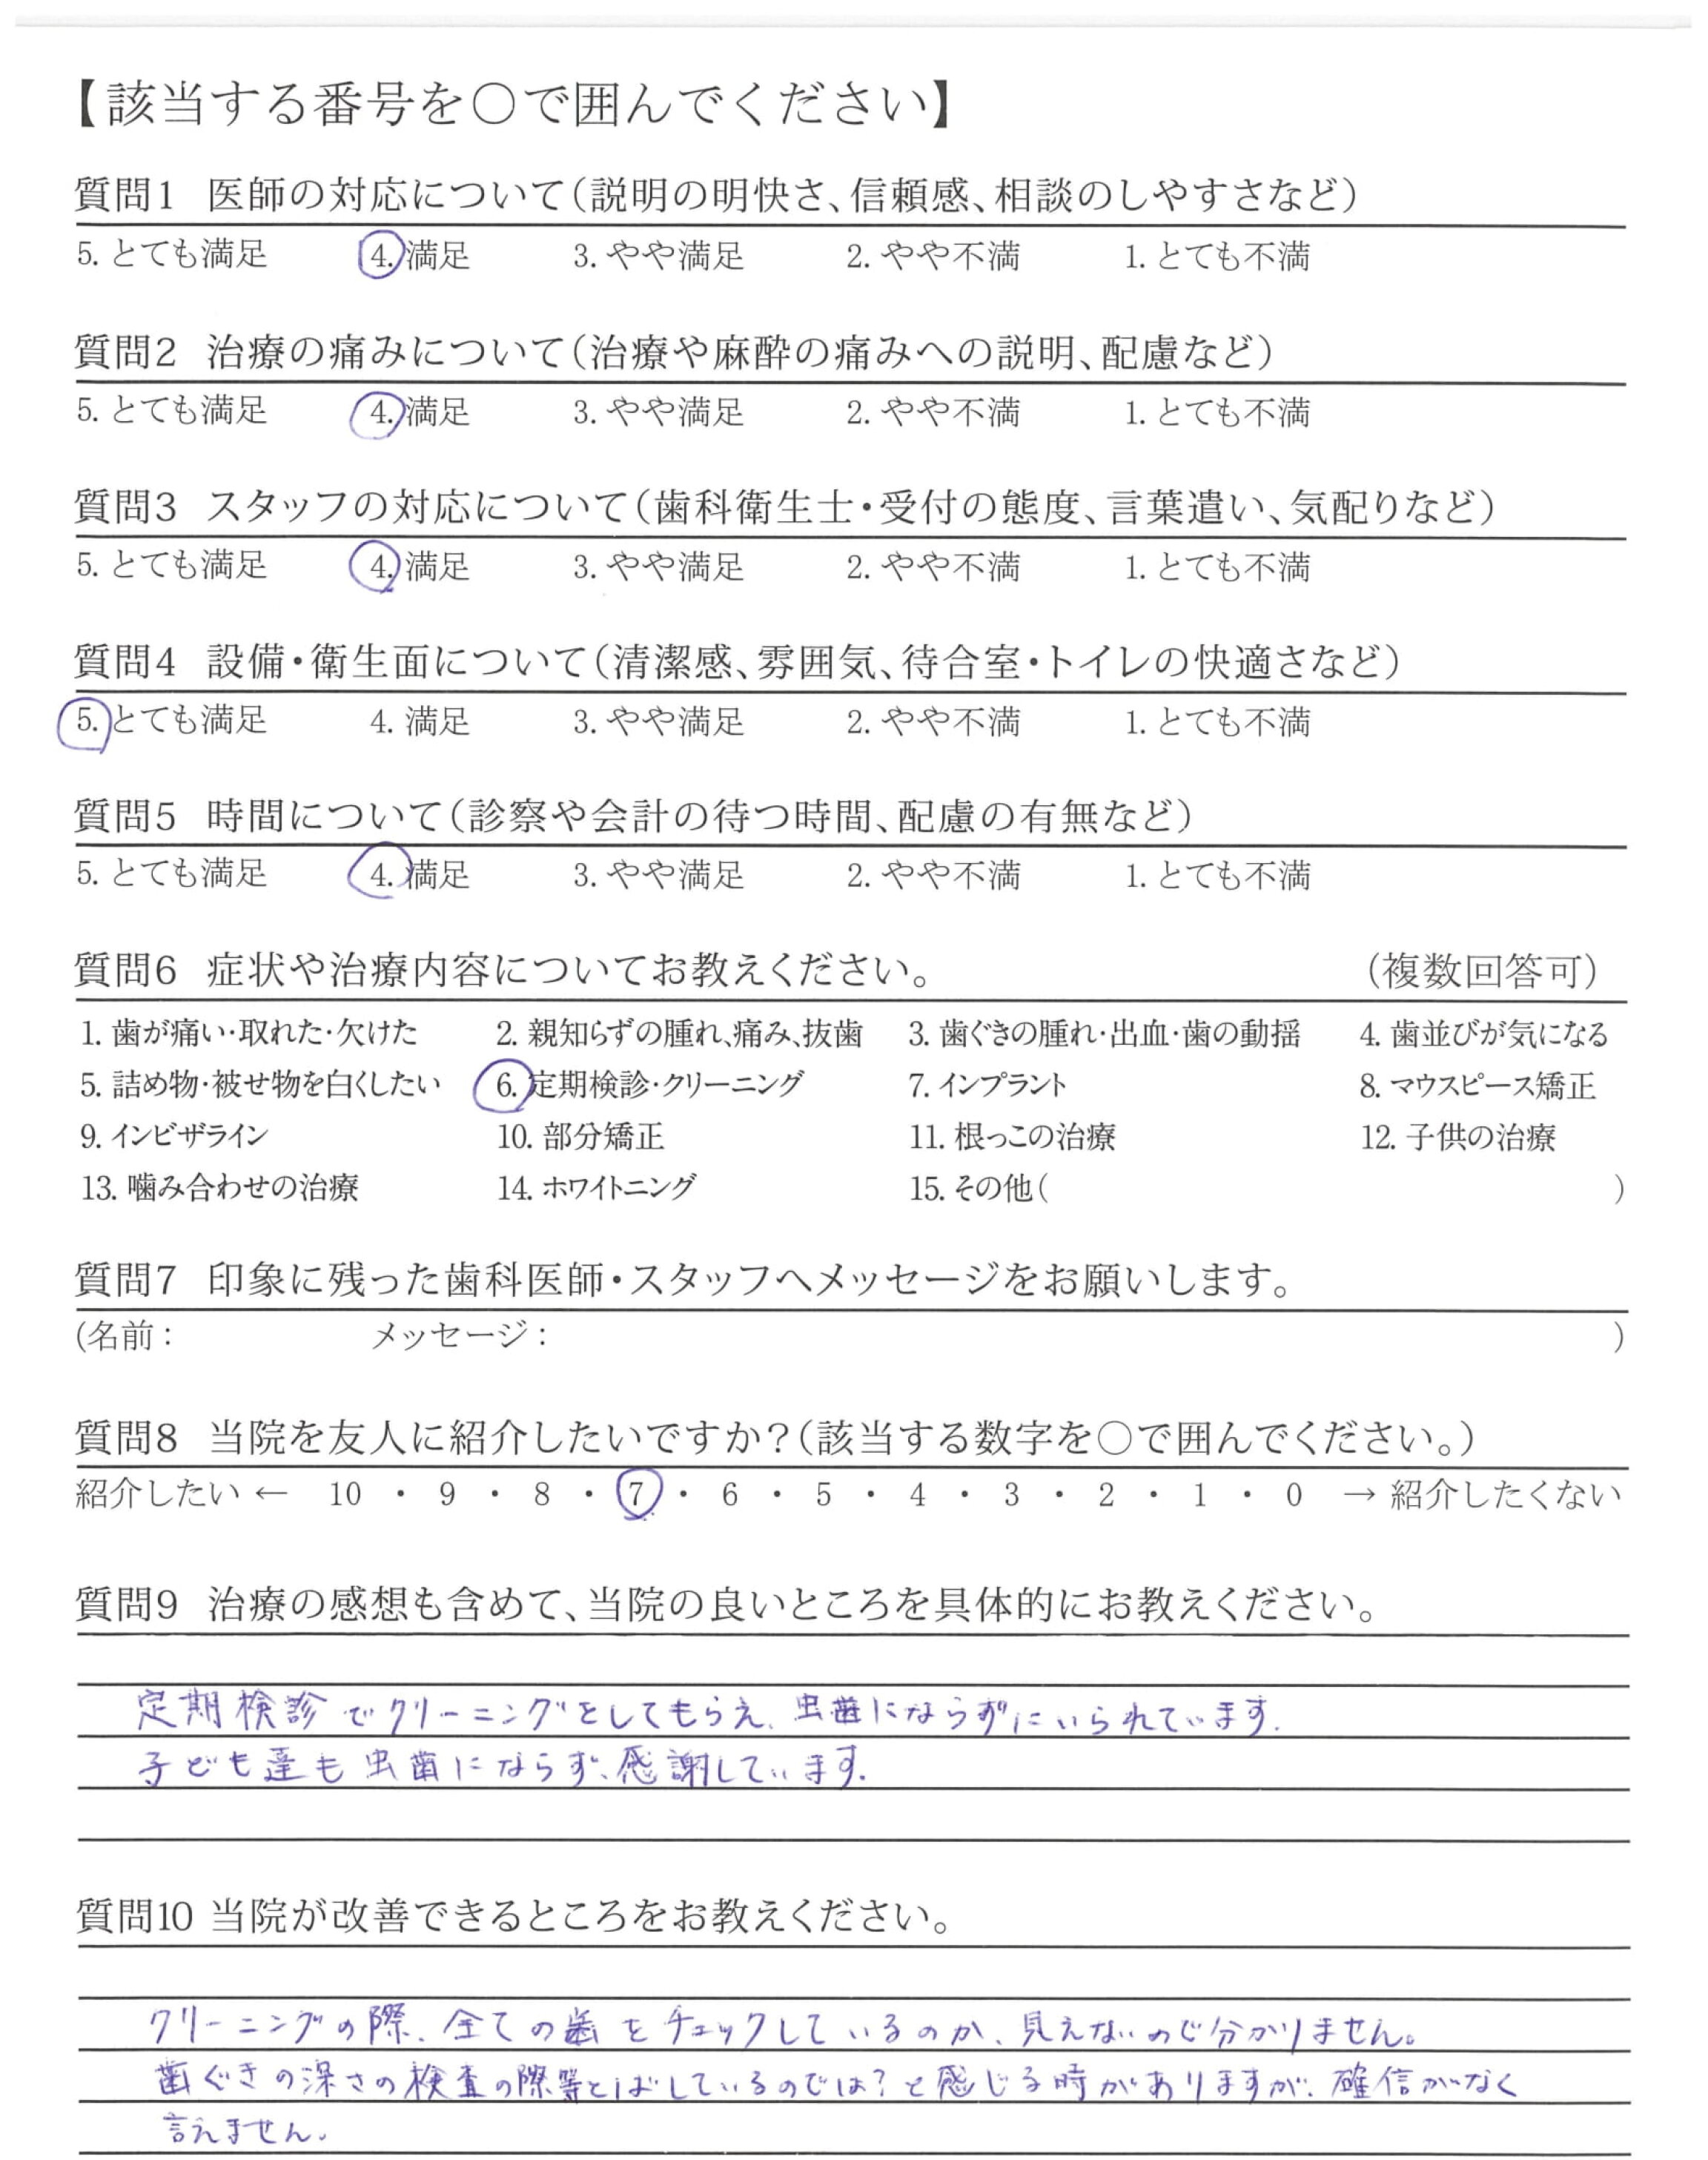 【該当する番号を○で囲んでください】
質問1 医師の対応について（説明の明快さ、信頼感、相談のしやすさなど）
5. とても満足 4. 満足 3. やや満足 2. やや不満 1. とても不満
質問2 治療の痛みについて（治療や麻酔の痛みへの説明、配慮など）
5. とても満足 4. 満足 3. やや満足 2. やや不満 1. とても不満
質問3 スタッフの対応について（歯科衛生士・受付の態度、言葉遣い、気配りなど）
5. とても満足 4. 満足 3. やや満足 2. やや不満 1. とても不満
質問4 設備・衛生面について（清潔感、雰囲気、待合室・トイレの快適さなど）
5. とても満足 4. 満足 3. やや満足 2. やや不満 1. とても不満
質問5 時間について（診察や会計の待つ時間、配慮の有無など）
5. とても満足 4. 満足 3. やや満足 2. やや不満 1. とても不満
質問6 症状や治療内容についてお教えください。 （複数回答可）
1. 歯が痛い・取れた・欠けた 2. 親知らずの腫れ、痛み、抜歯 3. 歯ぐきの腫れ・出血・歯の動揺 4. 歯並びが気になる
5. 詰め物・被せ物を白くしたい 6. 定期検診・クリーニング 7. インプラント 8. マウスピース矯正
9. インビザライン 10. 部分矯正 11. 根っこの治療 12. 子供の治療
13. 噛み合わせの治療 14. ホワイトニング 15. その他（ ）
質問7 印象に残った歯科医師・スタッフへメッセージをお願いします。
(名前： メッセージ： )
質問8 当院を友人に紹介したいですか？（該当する数字を○で囲んでください。）
紹介したい ← 10 ・ 9 ・ 8 ・ 7 ・ 6 ・ 5 ・ 4 ・ 3 ・ 2 ・ 1 ・ 0 → 紹介したくない
質問9 治療の感想も含めて、当院の良いところを具体的にお教えください。
定期検診でクリーニングをしてもらえ、虫歯にならずにいられています。
子ども達も虫歯にならず、感謝しています。
質問10 当院が改善できるところをお教えください。
クリーニングの際、全ての歯をチェックしているのか、見えないので分かりません。
歯ぐきの深さの検査の際等とばしているのでは？と感じる時がありますが、確信がなく
言えません。